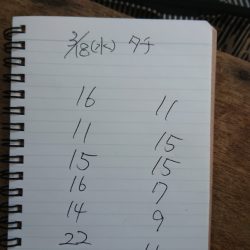 3/18(水) タチ
16 11
11 15
15 15
16 7
14 9
22